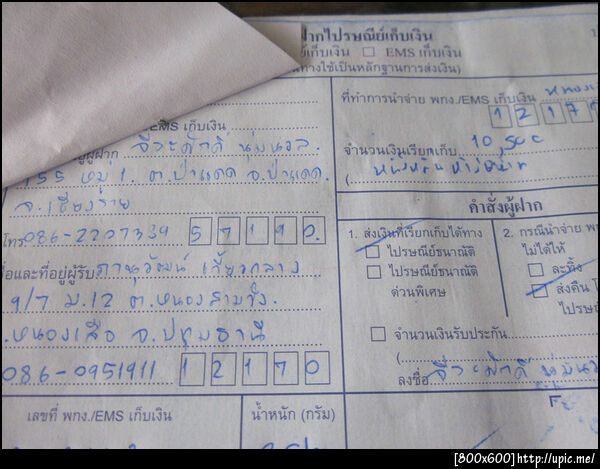 ฝากไปรษณีย์เก็บเงิน
เก็บเงิน ☐ EMS เก็บเงิน
ทางใช้เป็นหลักฐานการส่งเงิน)
EMS เก็บเงิน
ผู้ฝาก จีระศักดิ์ นุ่มนวล
155 หมู่ 1. ต.ป่าแดด อ.ป่าแดด
จ.เชียงราย
โทร 086-2207334 57190
ชื่อและที่อยู่ผู้รับ ภานุวัฒน์
9/7 ม.12 ต.หนองสามวัง
.หนองเสือ จ.ปทุมธานี
086-0951911 12170
เลขที่ พกง./EMS เก็บเงิน
น้ำหนัก (กรัม)
ที่ทำการนำจ่าย พกง./EMS เก็บเงิน
1217
จำนวนเงินเรียกเก็บ 10,500
(
คำสั่งผู้ฝาก
1. ส่งเงินที่เรียกเก็บได้ทาง
☐ ไปรษณีย์ธนาณัติ
☐ ไปรษณีย์ธนาณัติ
ด่วนพิเศษ
2. กรณีนำจ่าย พ
ไม่ได้ให้
☐ ละทิ้ง
☐ ส่งคืน
ไปรษ
☐ จำนวนเงินรับประกัน
(
ลงชื่อ จีระศักดิ์ นุ่มนว
[800x600]http://upic.me/